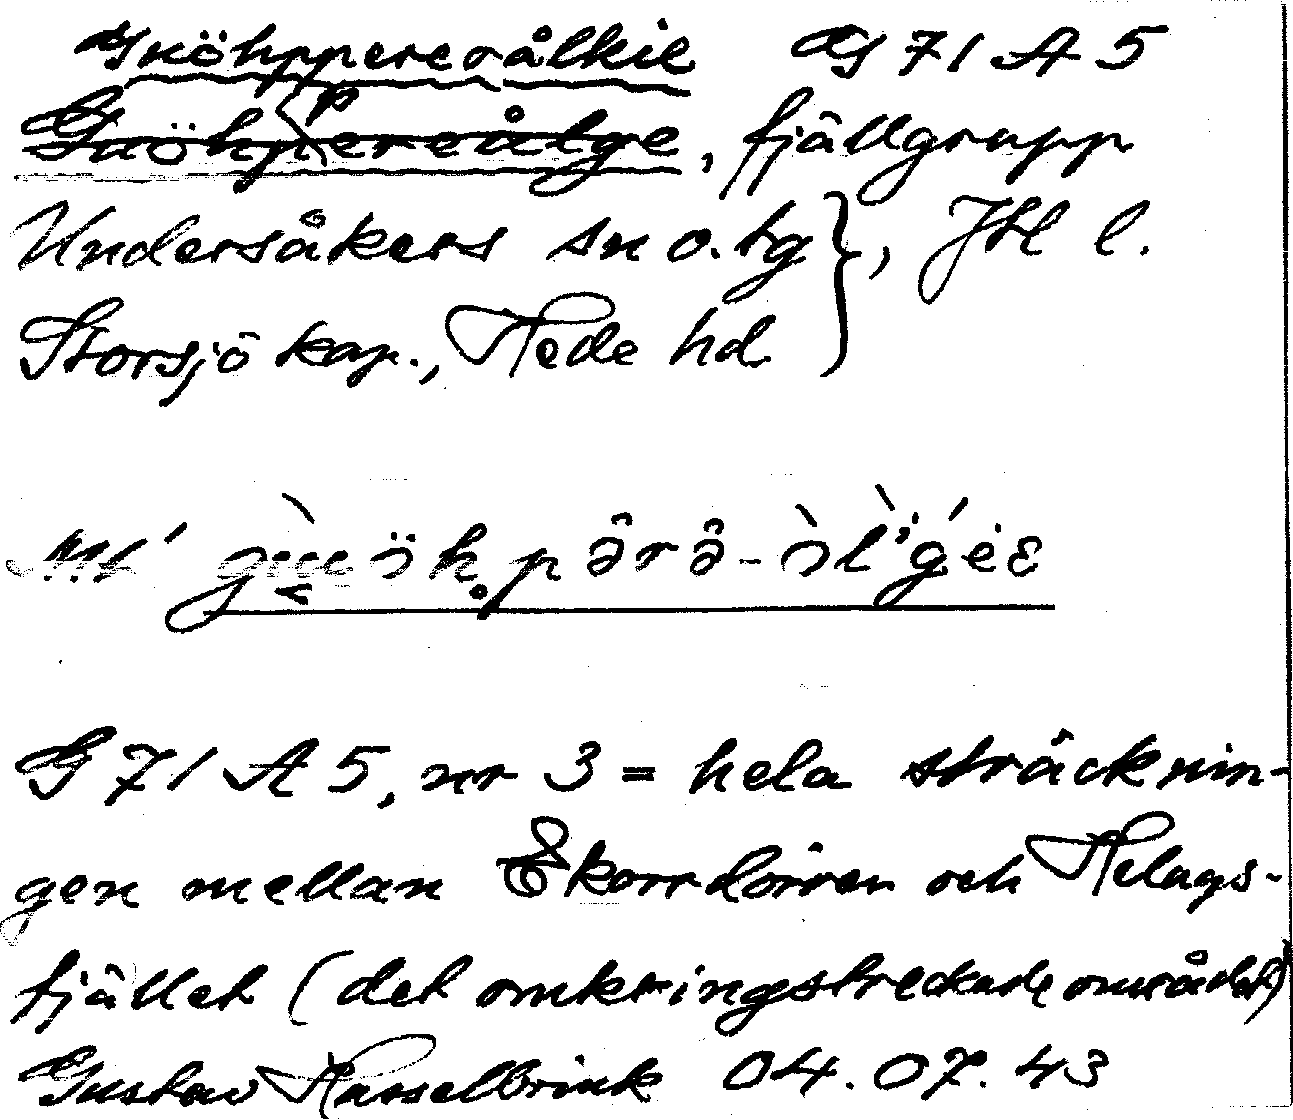 Gköhppererålkie G 71 A 5
Gaöhpereålge, fjällgrupp
Undersåkers sn o. tg }, Jtl l.
Storsjö kap., Hede hd
G 71 A 5, nr 3 = hela sträcknin-
gen mellan Ekorrdörren och Helags-
fjället (det omkringstreckade området)
Gustav Hasselbrink 04.07.43